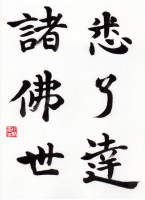 悉了達
諸佛世